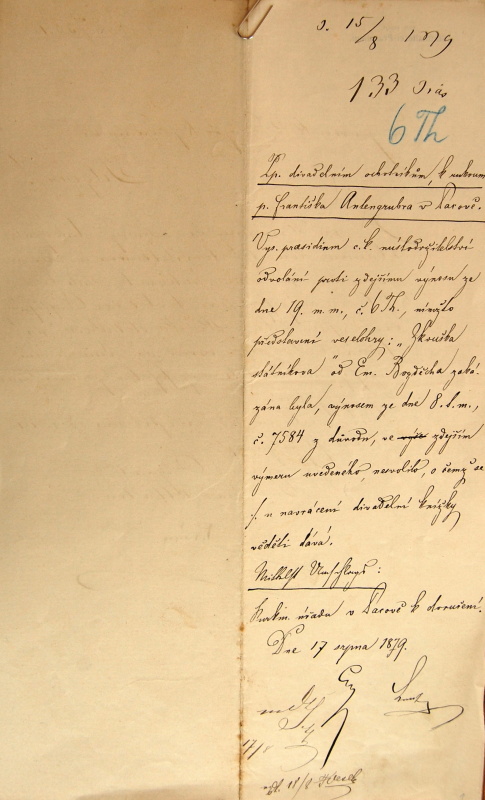 15/8 1879
133
6 Th
Lp. divadelním ochotníkům, k rukoum
p. Františka Antengrubra v Pacově.
Vys. praesidium c. k. místodržitelství
odvolání proti zdejšímu výnosu ze
dne 19. m. m., č. 6 Th., nímžto
představení veselohry: „Zkouška
státníkova" od Em. Bozděcha zaká-
zána byla, výnosem ze dne 8. t. m.,
č. 7584 z důvodu, ve výše zdejším
výměru uvedeného, nesvolilo, o čemž se
/. u navrácení divadelní knížky
věděti dává.
Mittelst Umschlags:
úřadu v Pacově k doručení.
Dne 17 srpna 1879.
17/8
18/8